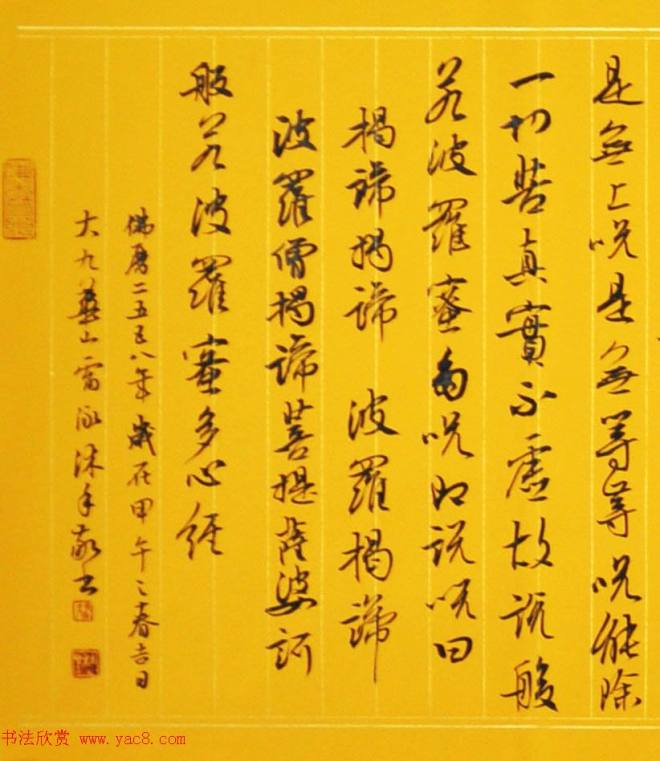 是無上咒是無等等咒能除
一切苦真實不虛故說般
若波羅蜜多咒即說咒曰
揭諦揭諦 波羅揭諦
波羅僧揭諦菩提薩婆訶
般若波羅蜜多心經
佛曆二五五八年歲在甲午之春吉日
大九華山雷泳沐手敬书
书法欣赏 www.yac8.com